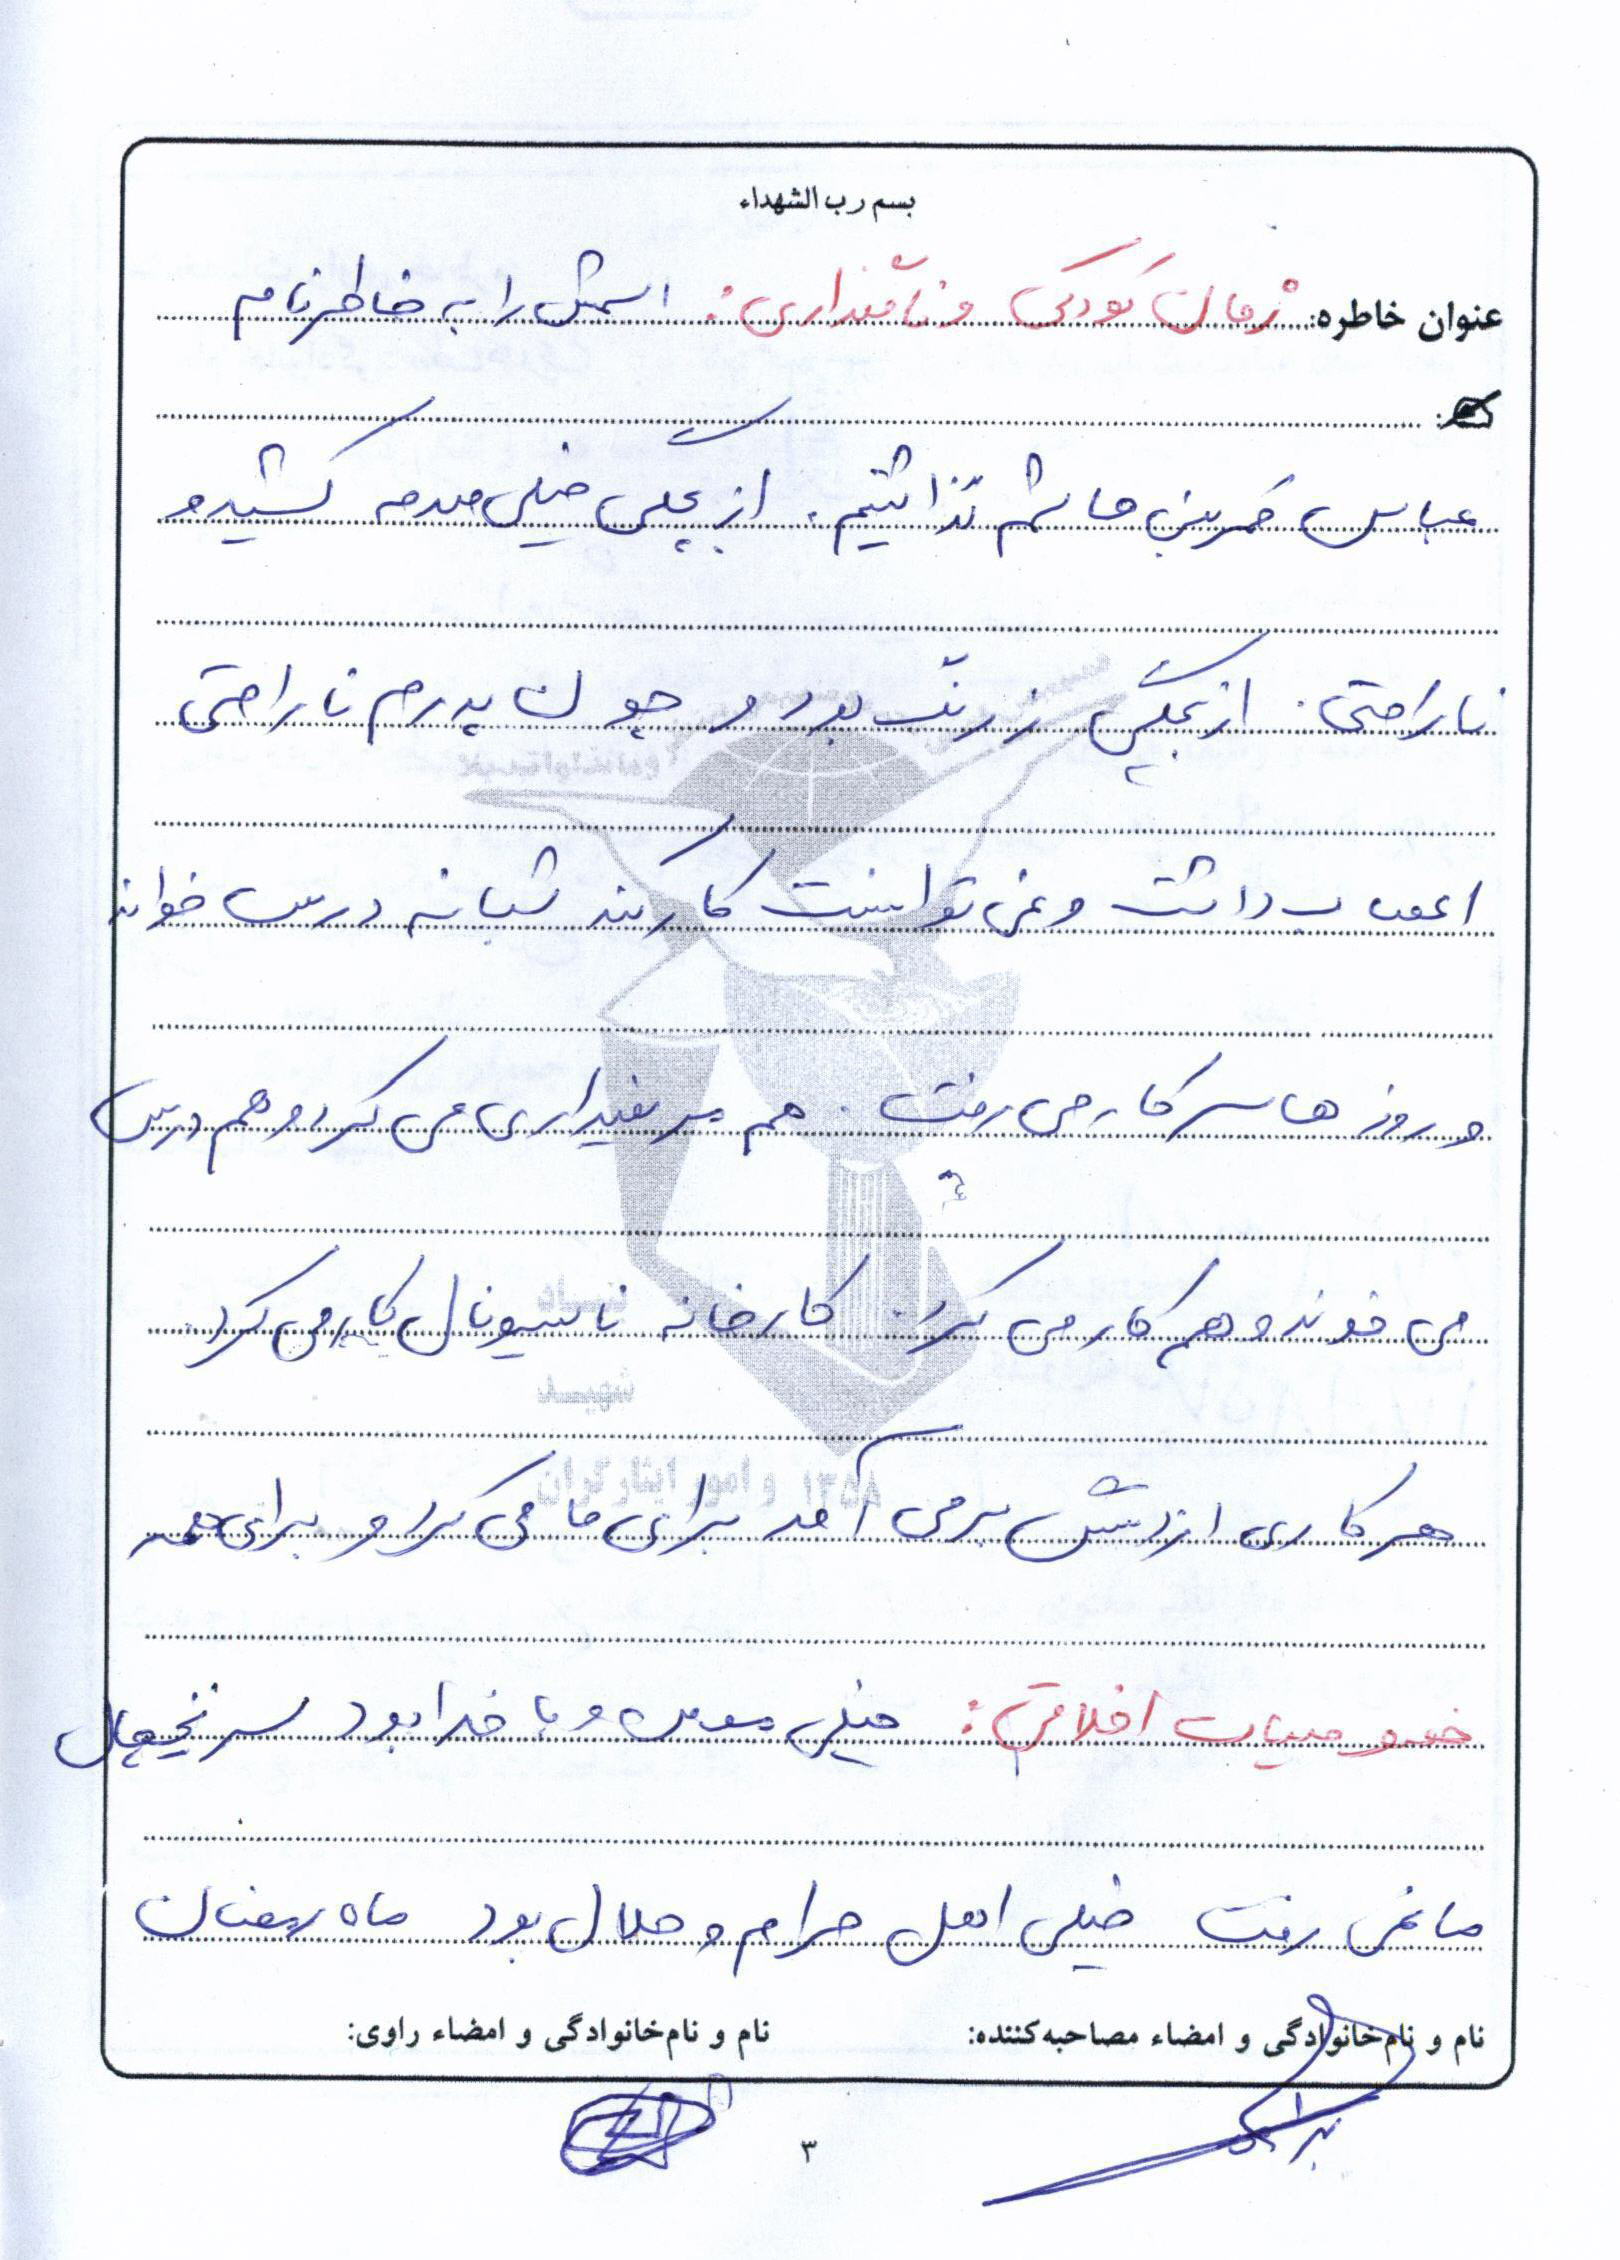 بسم رب الشهداء
عنوان خاطره: زمان کودکی و نامگذاری: اسمش را به خاطر نام
عباس قمر بنی هاشم گذاشتیم. از بچگی خیلی صدمه کشید و
ناراحتی. از بچگی زرنگ بود و چون پدرم ناراحتی
اعصاب داشت و نمی توانست کار کند شبانه درس خواند
و روزها سر کار می رفت. هم می کرد و هم درس
می خوند و هم کار می کرد. کارخانه ناسیونال کار می کرد.
هر کاری از دستش برمی آمد برای ما می کرد و برای همه
خصوصیات اخلاقی: خیلی مومن و با خدا بود سر یخچال
ما نمی رفت خیلی اهل حرام و حلال بود ماه رمضان
نام و نام‌خانوادگی و امضاء مصاحبه‌کننده: نام و نام‌خانوادگی و امضاء راوی:
۳